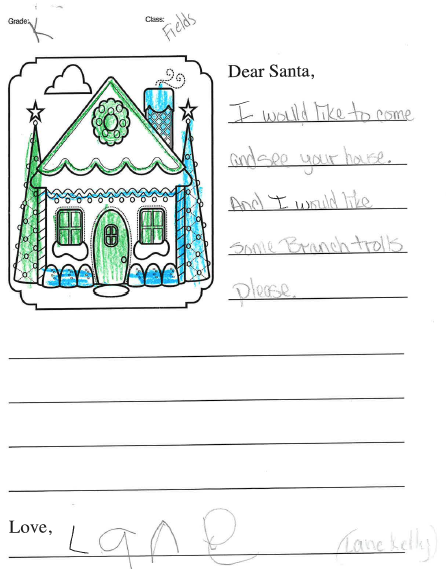 Grade: K
Class: Fields
Dear Santa,
I would like to come
and see your house.
And I would like
some Branch trolls
please.
Love, Lane
(Lane Kelly)